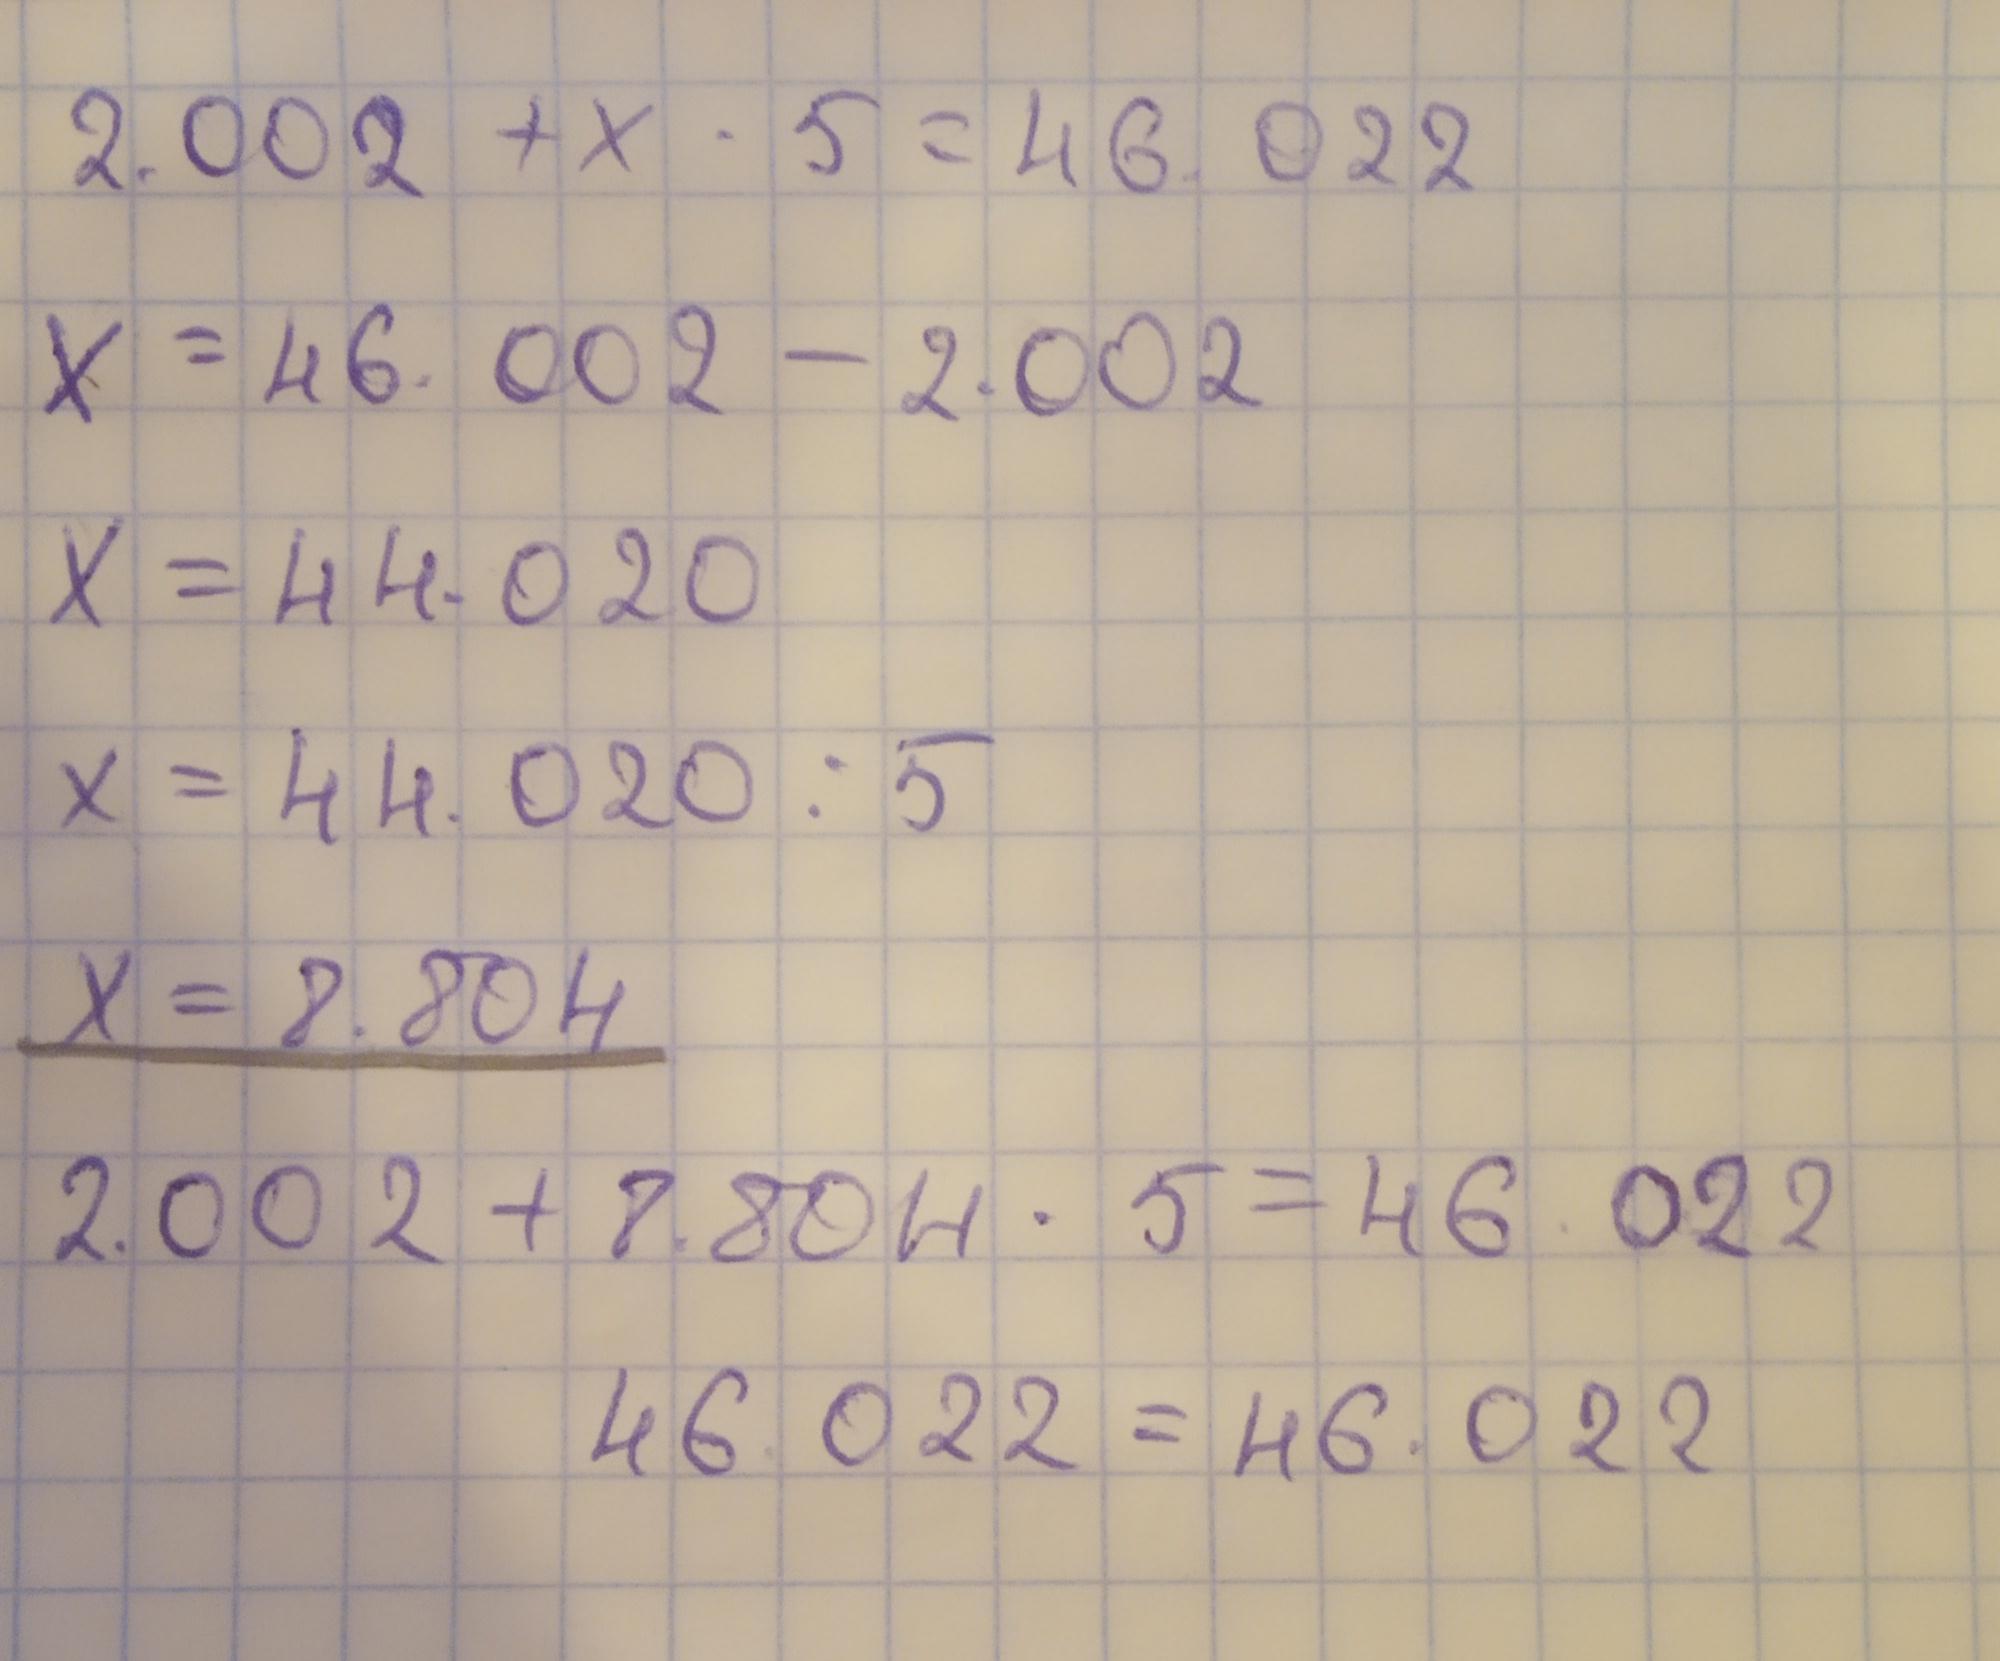 2.002 + x · 5 = 46.022
x = 46.002 - 2.002
x = 44.020
x = 44.020 : 5
x = 8.804
2.002 + 8.804 · 5 = 46.022
46.022 = 46.022